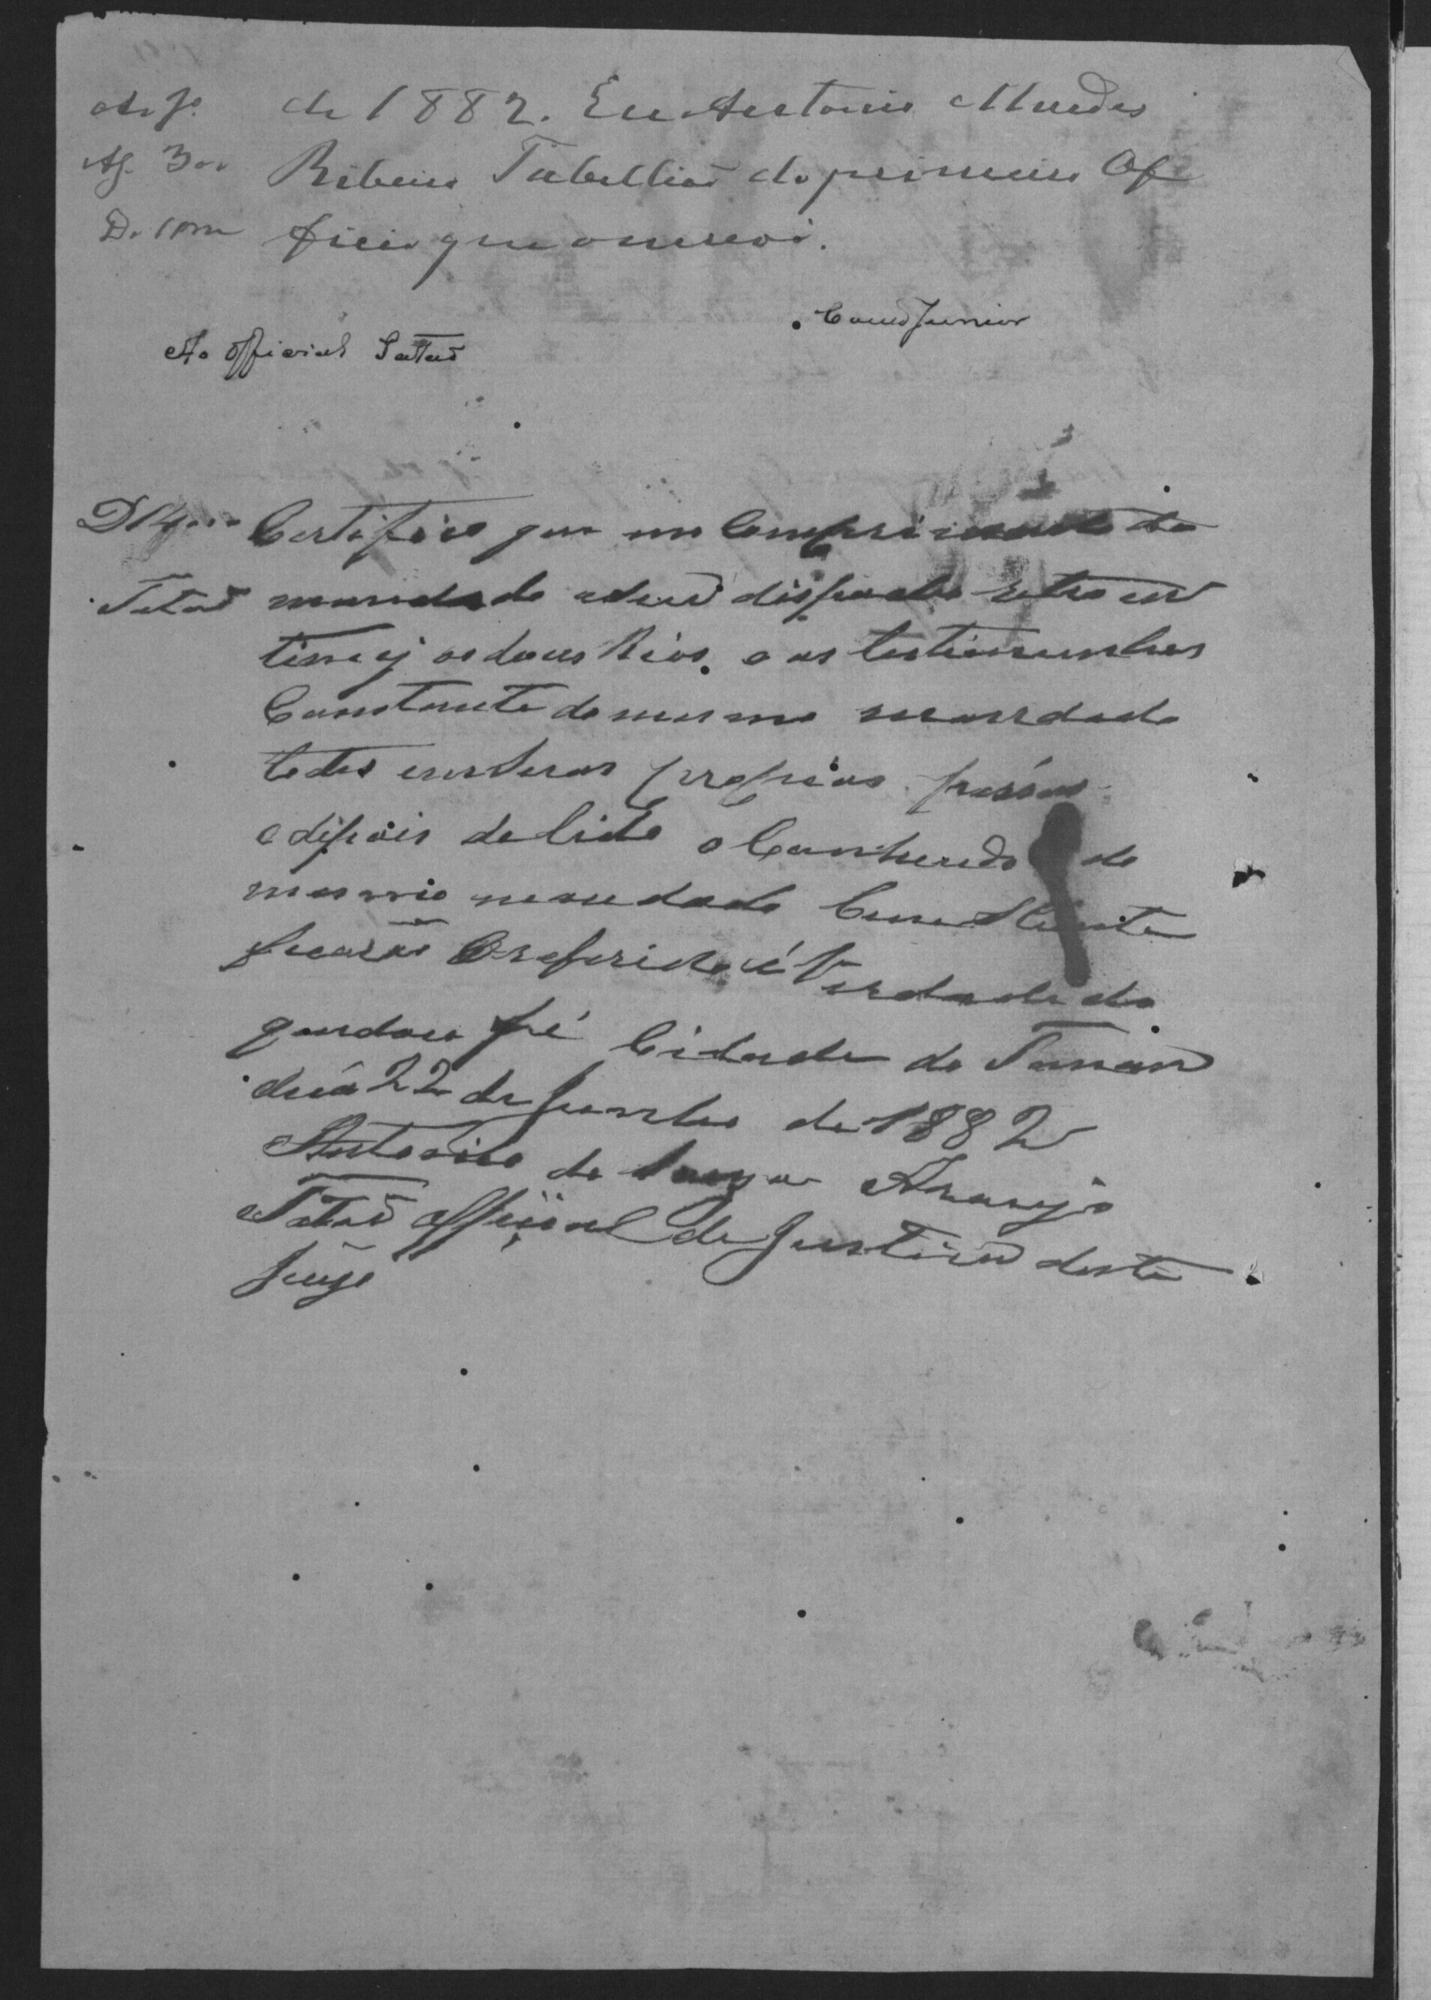 de 1882. Eu Antonio Mendes
Ribeiro Tabellião do primeiro Of
ficio que o escrevi.
Ag. 300
D. 1000
Junior
Ao official Tatão
D 14000 Certifico que em Comprimento do
Tatão mandado e seu dispacho retro in
timei os dous Reos. e as testimunhas
Constante do mesmo mandado
todos em suas propias pessoas
e dipois de lido o Contheudo do
mesmo mandado
ficarão O referido é Verdade do
que dou fé Cidade do Taman
duá 22 de Junho de 1882
Antonio de Souza Araujo
Tatão official de Justiça deste
Juizo